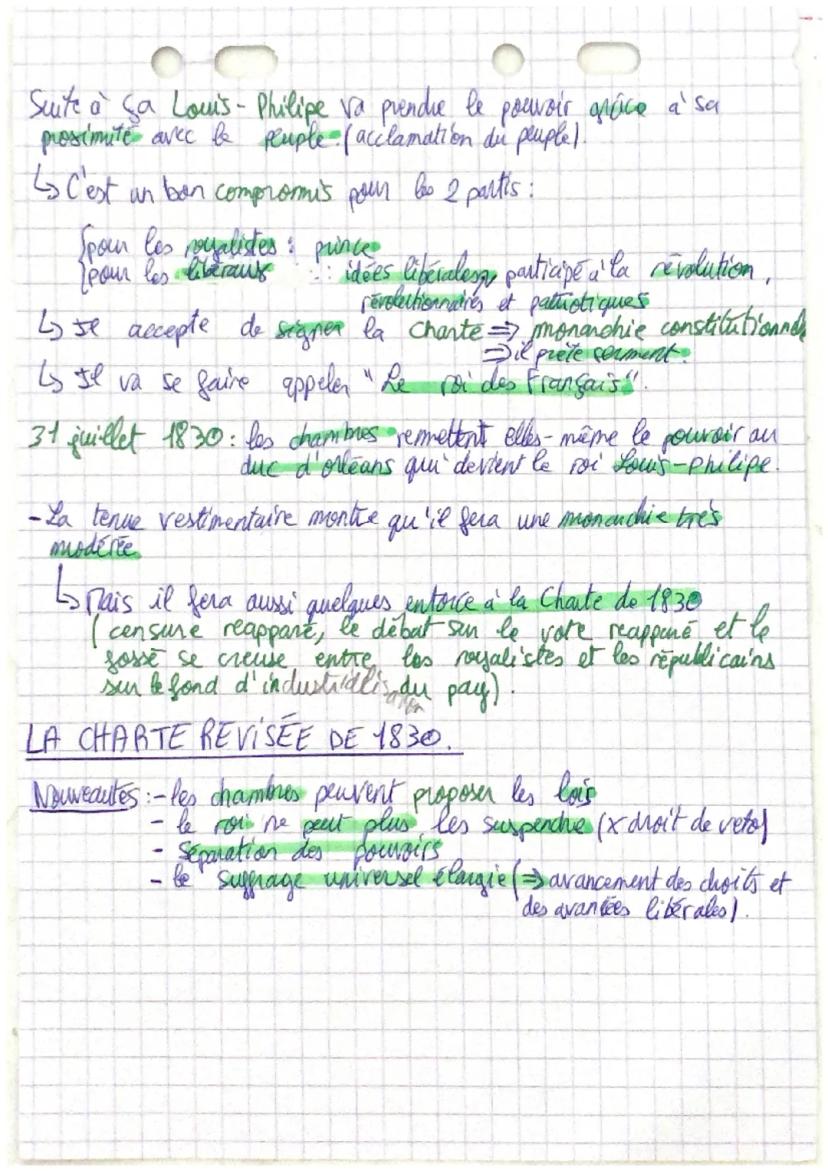 Suite à ça Louis-Philipe va prendre le pouvoir grâce à sa
proximité avec le peuple (acclamation du peuple).
↳ C'est un bon compromis pour les 2 partis :
{pour les royalistes : prince
{pour les libéraux : idées libérales, participé à la révolution,
révolutionnaires et patriotiques
↳ Il accepte de signer la Charte ⇒ monarchie constitutionnelle
⇒ il prête serment.
↳ Il va se faire appeler "Le roi des Français".
31 juillet 1830 : les chambres remettent elles-même le pouvoir au
duc d'orléans qui devient le roi Louis-Philipe.
- La tenue vestimentaire montre qu'il fera une monarchie très
modérée
↳ Mais il fera aussi quelques entorce à la Charte de 1830
(censure réapparé, le débat sur le vote réapparé et le
fossé se creuse entre les royalistes et les républicains
sur le fond d'industrialisation du pay).
LA CHARTE REVISÉE DE 1830.
Nouveautés : - les chambres peuvent proposer les lois
- le roi ne peut plus les suspendre (x droit de veto)
- séparation des pouvoirs
- le suffrage universel élargie (⇒ avancement des droits et
des avancées libérales).